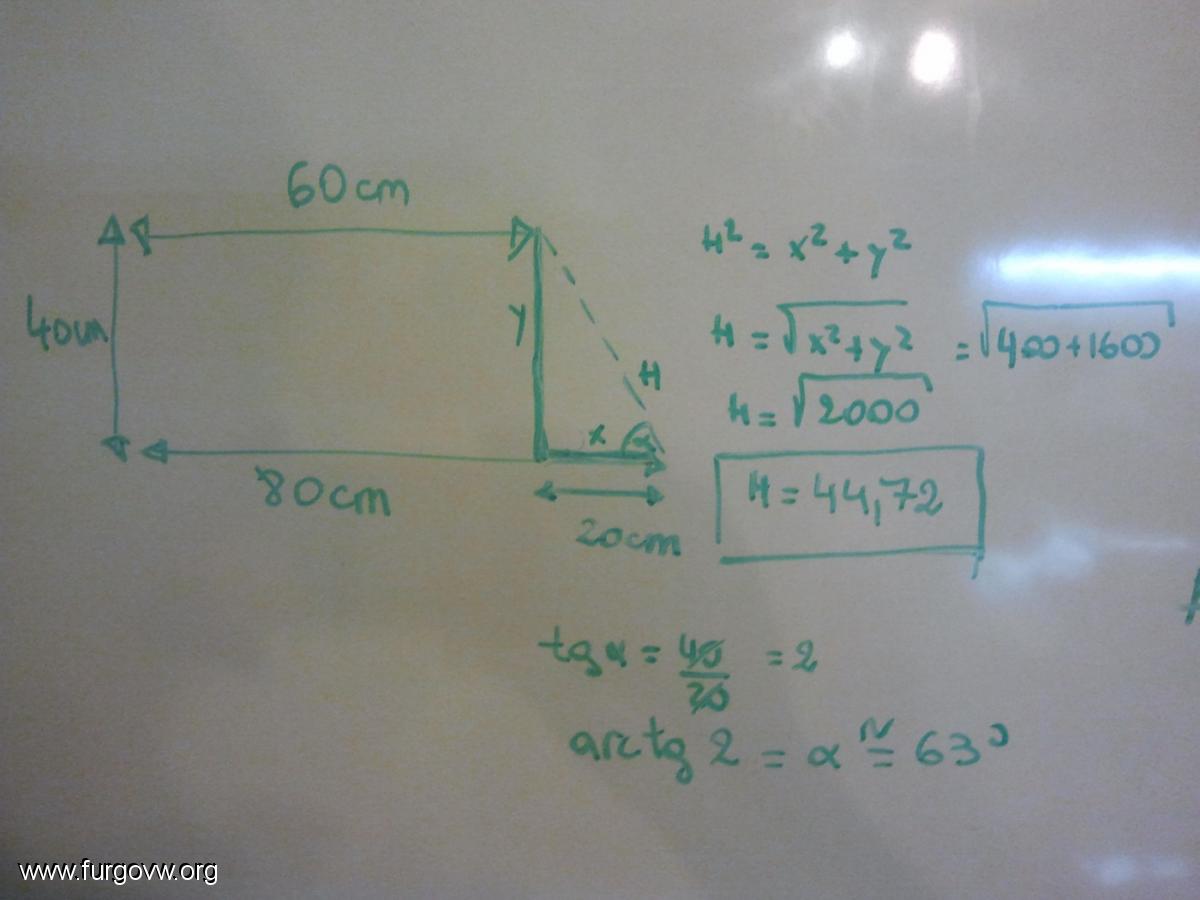 60cm
40cm
y
H
x
α
80cm
20cm
H² = x² + y²
H = √x²+y² = √400+1600
H = √2000
H = 44,72
tg α = 40/20 = 2
arctg 2 = α ≅ 63°
www.furgovw.org